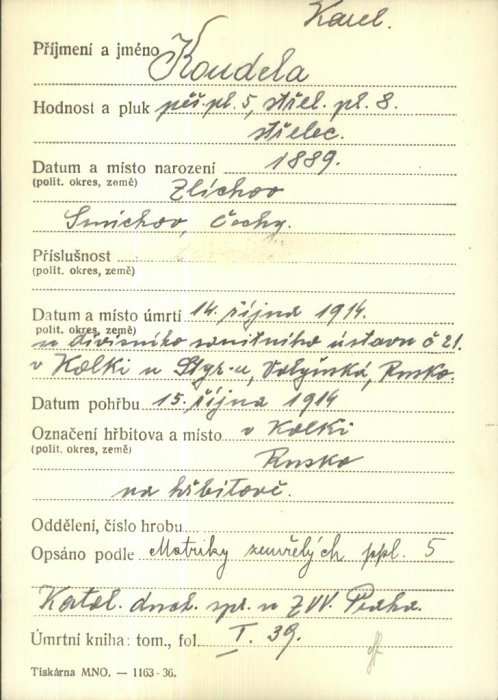 Karel.
Příjmení a jméno Koudela
Hodnost a pluk pěš. pl. 5, střel. pl. 8.
střelec.
Datum a místo narození 1889.
(polit. okres, země) Zlíchov
Smíchov, Čechy.
Příslušnost
(polit. okres, země)
Datum a místo úmrtí 14. října 1914.
polit. okres, země)
u divisního sanitního ústavu č 21.
v Kolki u Styr-u, Volyňská, Rusko.
Datum pohřbu 15. října 1914
Označení hřbitova a místo v Kolki
(polit. okres, země)
Rusko
na hřbitově.
Oddělení, číslo hrobu
Opsáno podle Matriky zemřelých ppl. 5
Katol. duch. spr. u ZVV. Praha.
Úmrtní kniha: tom., fol. I. 39.
Tiskárna MNO. — 1163-36.